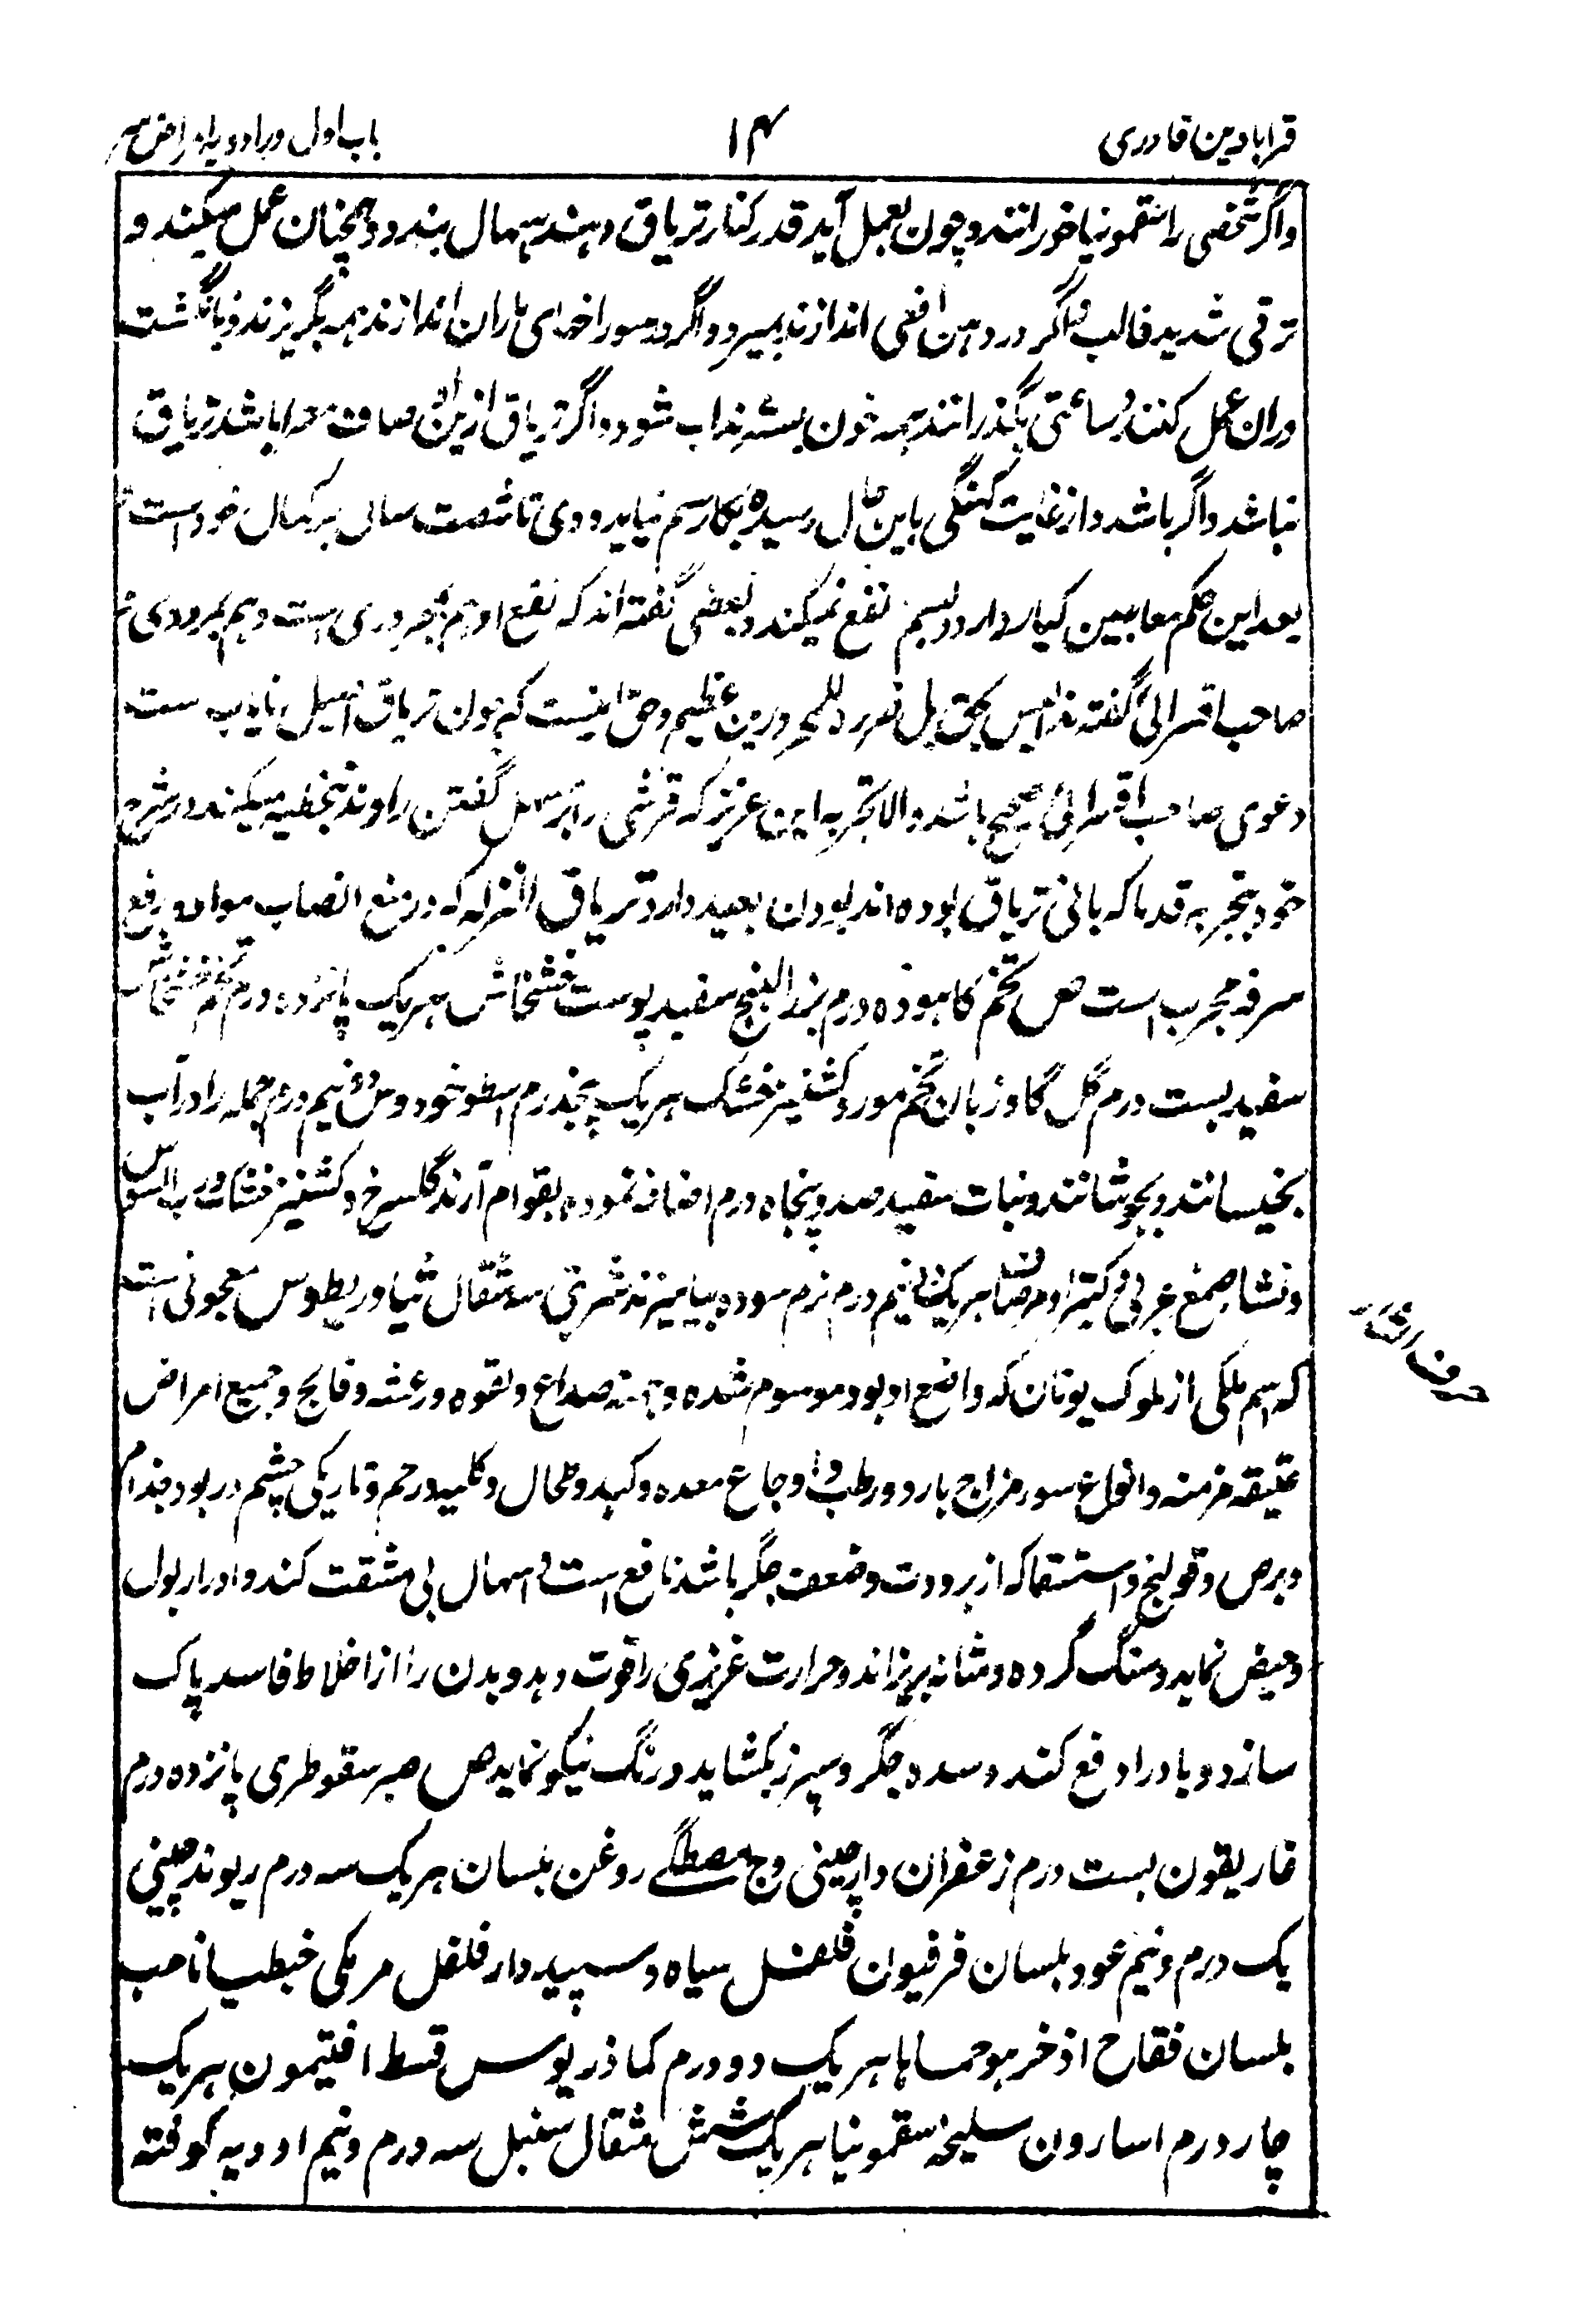 قرابادین قادری
۱۴
باب اول در ادویه امراض سر
و اگر شخصی را سقمونیا خورانند و چون بعمل آید قدر کنار تریاق دهند اسهال بندد و همچنان عمل میکند و
ترقی شدید غالب و اگر در دهن افعی اندازند بمیرد و اگر در سوراخهای ماران اندازند همه بگریزند و بانگشت
دران عمل کنند و ساعتی بگذرانند همه خون بسته آب شود و اگر تریاق ازین صفات معرا باشد تریاق
نباشد و اگر باشد و از غایت کهنگی باین حال رسیده بکار سم نیاید و وی تا شصت سال بر کمال خود است
بعد این حکم معاجین کبار دارد و بسم نفع نمیکند و بعضی گفته اند که نفع او هم بمحروری است و هم بمبرودی
صاحب اقسرائی گفته هذا لیس بحق بل ضرره للمحرورین عظیم و حق اینست که چون تریاق اصیل نایاب ست
دعوی صاحب اقسرائی صحیح باشد والا تجربه این عزیز که قرشی را بر مسهل گفتن راوند تخطیه میکند در شرح
خود بتجربه قدما که بانی تریاق بوده اند بودن بعید دارد تریاق النزله که در منع انصباب مواد و رفع
سرفه مجرب است ص تخم کاهو ده درم بزر البنج سفید پوست خشخاش هریک پانزده درم تخم خشخاش
سفید بست درم گل گاوزبان تخم مورد کشنیز خشک هریک پنجدرم اسطوخودوس دو نیم درم جمله را در آب
بخیسانند و بجوشانند و نبات سفید صد و پنجاه درم اضافه نموده بقوام آرند گلسرخ و کشنیز خشک و رب السوس
و نشا و صمغ عربی و کتیرا و مرصاف هریک نیم درم نرم سوده بیامیزند شربتی سه مثقال ثیادریطوس معجونی است
حرف الثاء
که اسم ملکی از ملوک یونان که واضع او بود موسوم شده و جهته صداع و لقوه و رعشه و فالج و جمیع امراض
عتیقه مزمنه و انواع سور مزاج بارد و رطب و اوجاع معده و کبد و طحال و کلیه و رحم و تاریکی چشم و ربو و جذام
و برص و قولنج و استسقا که از برودت و ضعف جگر باشد نافع است و اسهال بی مشقت کند و ادرار بول
و حیض نماید و سنگ گرده و مثانه بریزاند و حرارت غریزی را قوت دهد و بدن را از اخلاط فاسد پاک
سازد و باد را دفع کند و سده جگر و سپرز بکشاید و رنگ نیکو نماید ص صبر سقوطری پانزده درم
غاریقون بست درم زعفران دارچینی وج مصطگے روغن بلسان هریک سه درم ریوند چینی
یک درم و نیم عود بلسان فرفیون فلفل سیاه و سپید دارفلفل مر مکی خبطیانا حب
بلسان فقاح اذخر مو حماما هریک دو درم کماذریوس قسط افتیمون هریک
چار درم اسارون سلیخه سقمونیا هریک شش مثقال سنبل سه درم و نیم ادویه کوفته